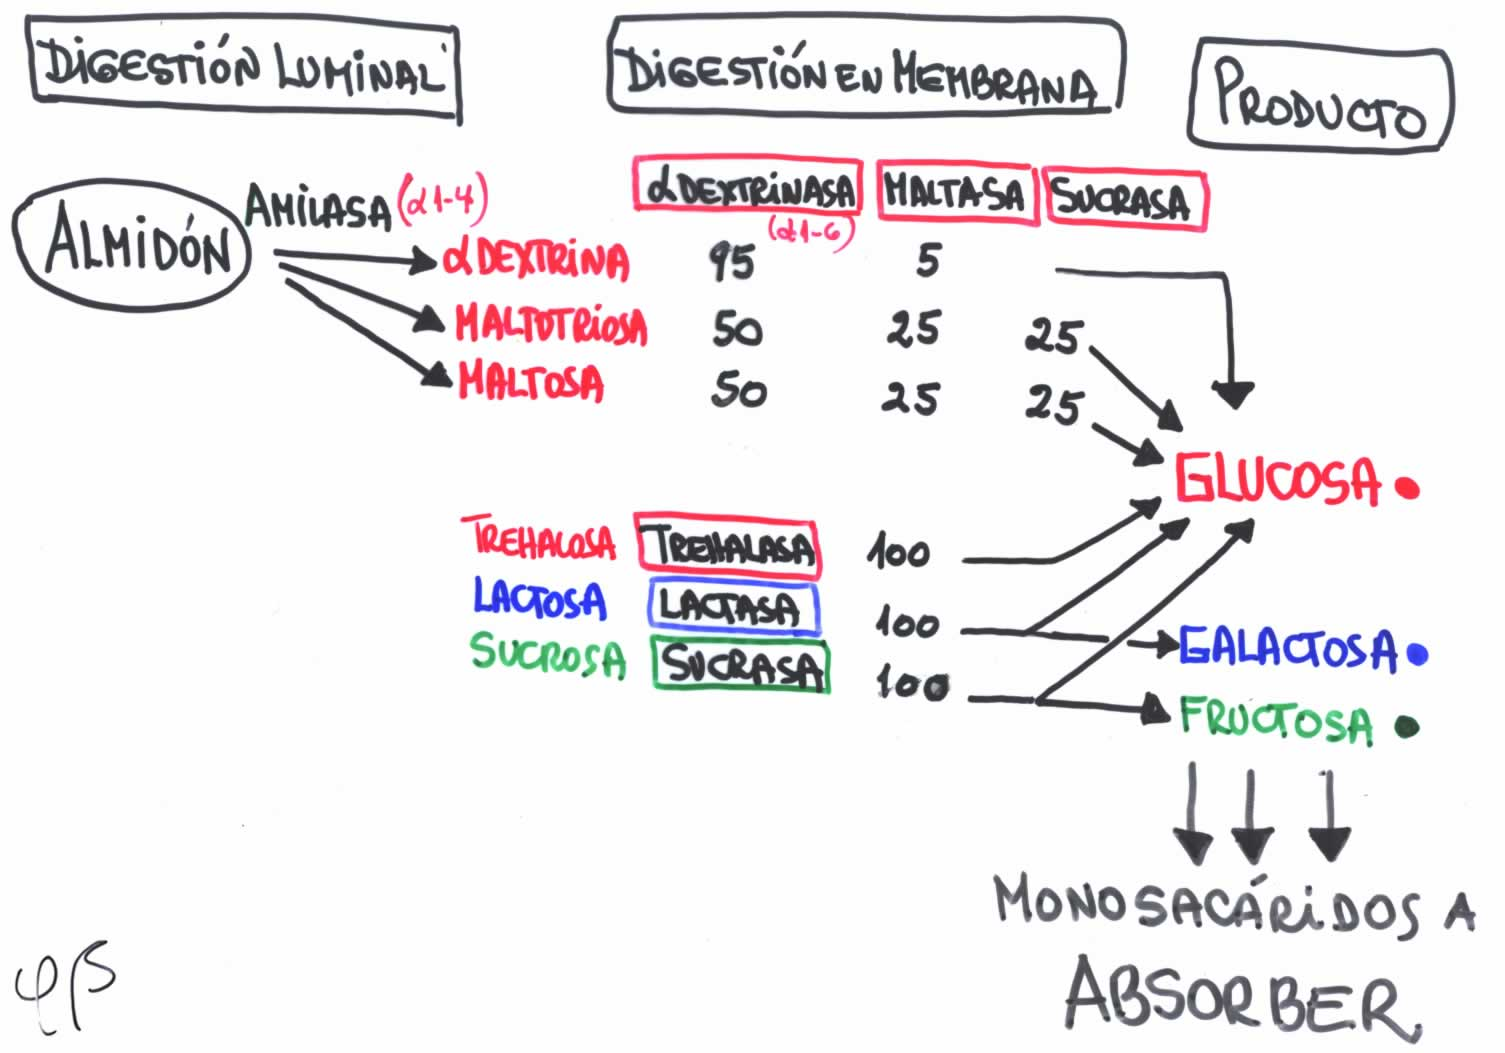 DIGESTIÓN LUMINAL
DIGESTIÓN EN MEMBRANA
PRODUCTO
ALMIDÓN
AMILASA (α 1-4)
α DEXTRINASA
MALTASA
SUCRASA
(α 1-6)
α DEXTRINA 95 5
MALTOTRIOSA 50 25 25
MALTOSA 50 25 25
GLUCOSA
TREHALOSA TREHALASA 100
LACTOSA LACTASA 100
GALACTOSA
SUCROSA SUCRASA 100
FRUCTOSA
MONOSACÁRIDOS A
ABSORBER